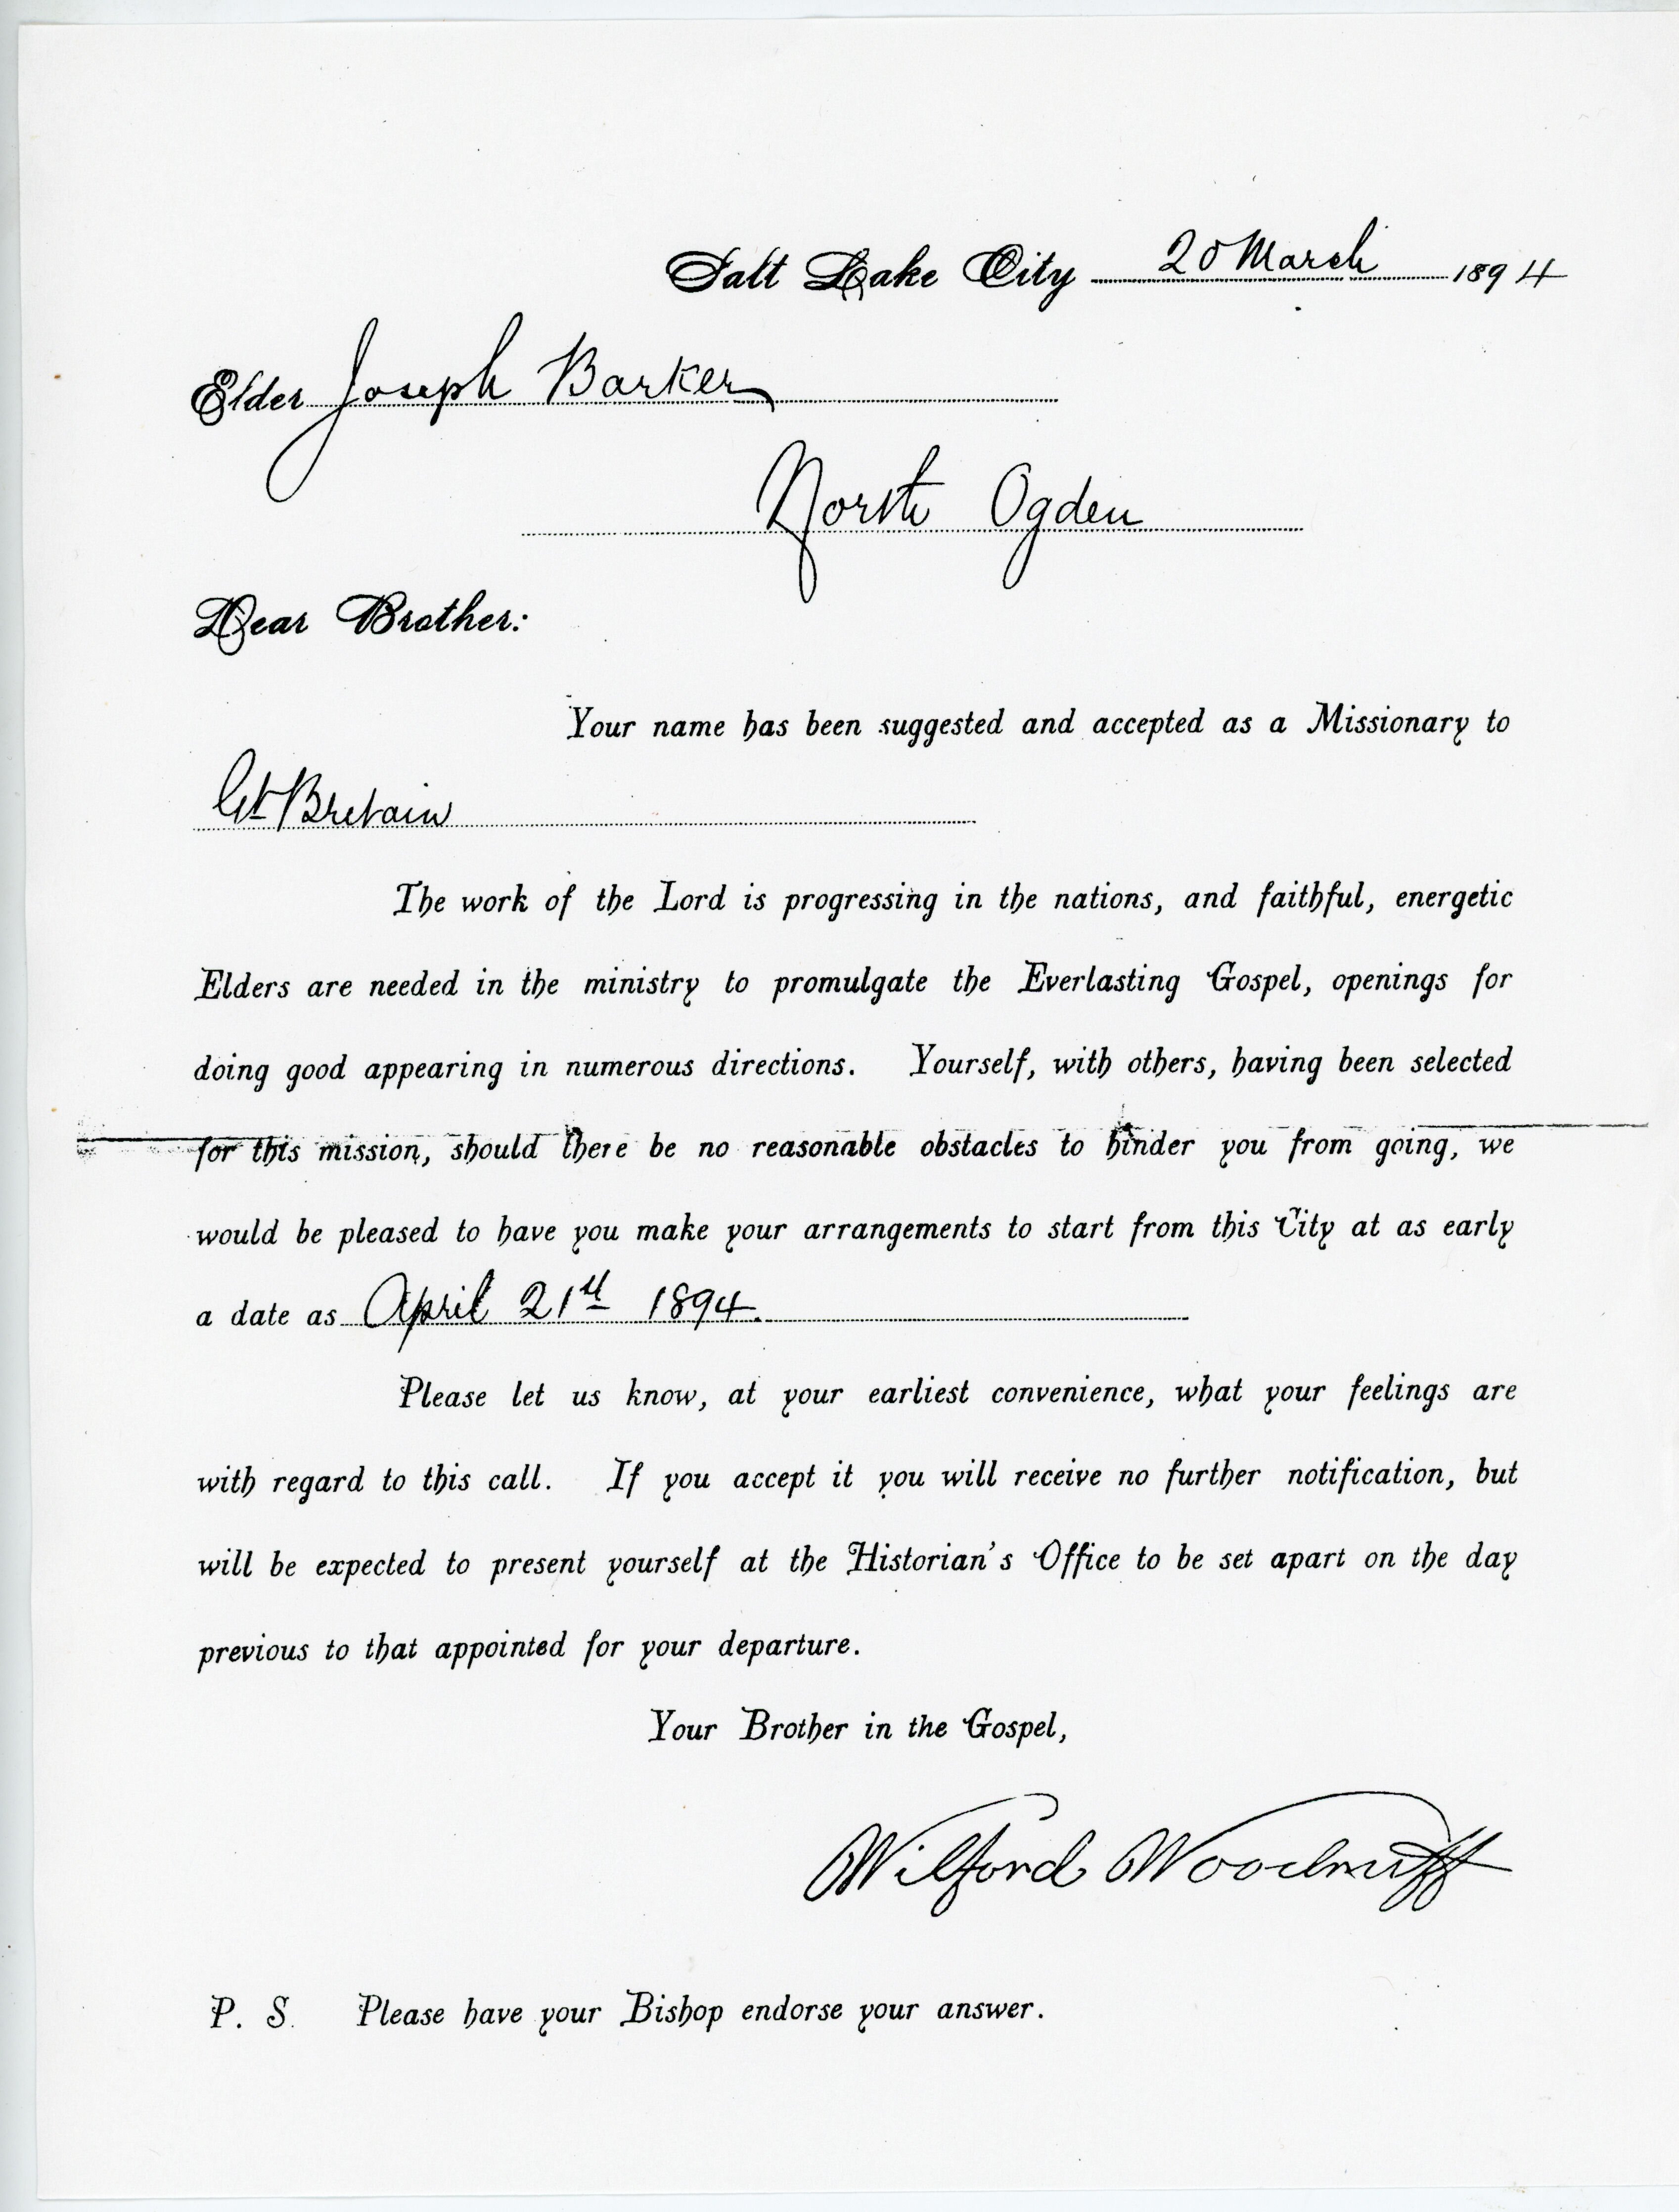 Salt Lake City 20 March 1894
Elder Joseph Barker
North Ogden
Dear Brother:
Your name has been suggested and accepted as a Missionary to
Gt Bretain
The work of the Lord is progressing in the nations, and faithful, energetic
Elders are needed in the ministry to promulgate the Everlasting Gospel, openings for
doing good appearing in numerous directions. Yourself, with others, having been selected
for this mission, should there be no reasonable obstacles to hinder you from going, we
would be pleased to have you make your arrangements to start from this City at as early
a date as April 21st 1894.
Please let us know, at your earliest convenience, what your feelings are
with regard to this call. If you accept it you will receive no further notification, but
will be expected to present yourself at the Historian's Office to be set apart on the day
previous to that appointed for your departure.
Your Brother in the Gospel,
Wilford Woodruff
P. S. Please have your Bishop endorse your answer.